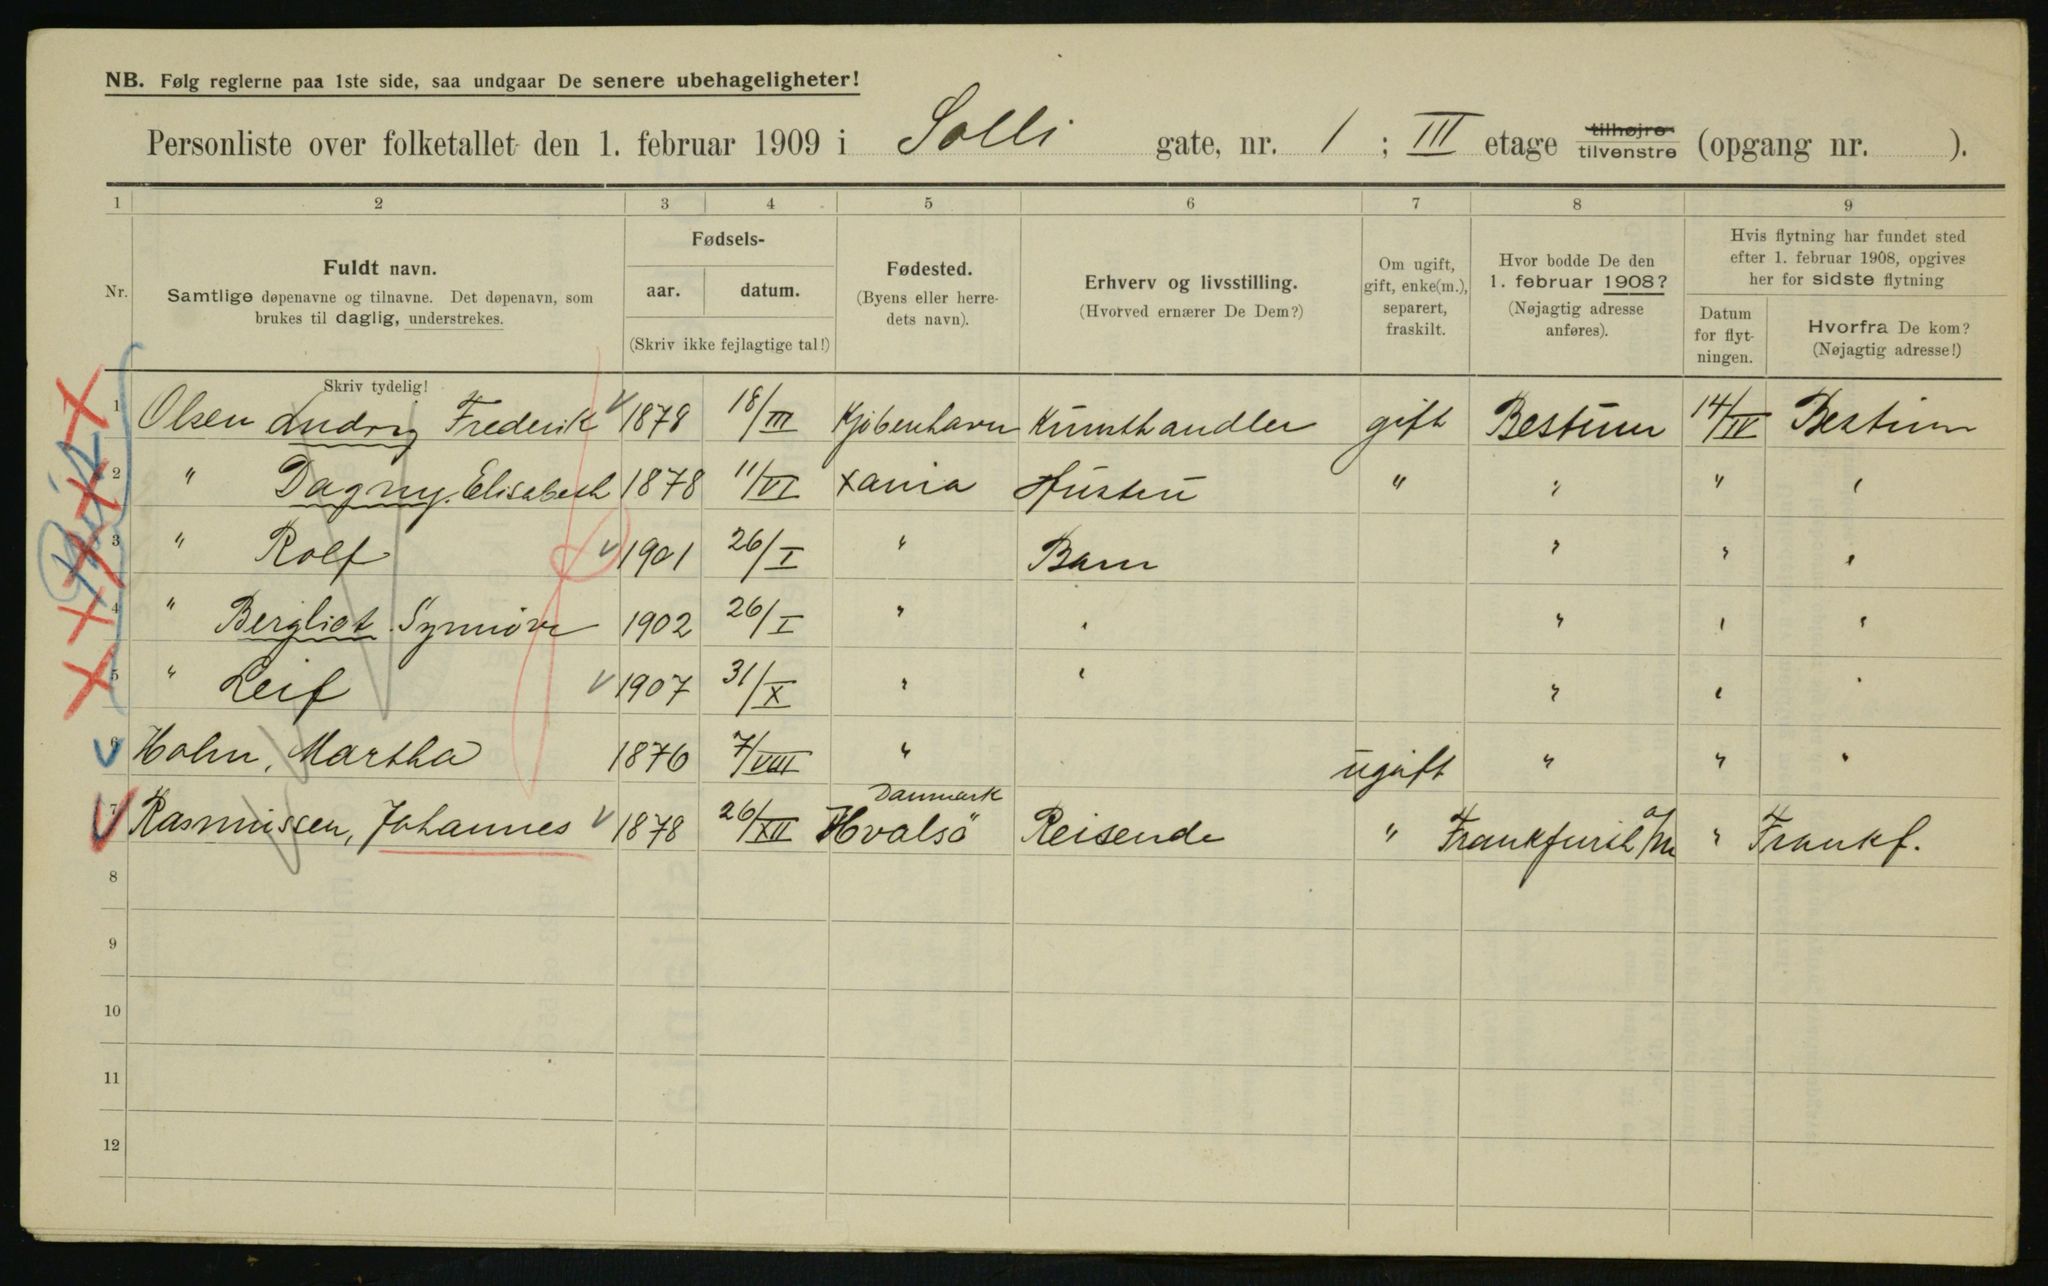 NB. Følg reglerne paa 1ste side, saa undgaar De senere ubehageligheter!
Personliste over folketallet den 1. februar 1909 i Solli gate, nr. 1 ; III etage tilhøjre tilvenstre (opgang nr. ).
1 2 3 4 5 6 7 8 9
Nr.
Fuldt navn.
Samtlige døpenavne og tilnavne. Det døpenavn, som
brukes til daglig, understrekes.
Skriv tydelig!
Fødsels-
aar. datum.
(Skriv ikke fejlagtige tal!)
Fødested.
(Byens eller herre-
dets navn).
Erhverv og livsstilling.
(Hvorved ernærer De Dem?)
Om ugift,
gift, enke(m.),
separert,
fraskilt.
Hvor bodde De den
1. februar 1908?
(Nøjagtig adresse
anføres).
Hvis flytning har fundet sted
efter 1. februar 1908, opgives
her for sidste flytning
Datum
for flyt-
ningen.
Hvorfra De kom?
(Nøjagtig adresse!)
1 Olsen Ludvig Frederik 1878 18/III Kjøbenhavn Kunsthandler gift Bestum 14/IV Bestum
2 " Dagny Elisabeth 1878 11/VI Xania Hustru " " " "
3 " Rolf 1901 26/I " Barn " " "
4 " Bergliot Synnøve 1902 26/I " " " " "
5 " Leif 1907 31/X " " " " "
6 Holm, Martha 1876 7/VIII " ugift " " "
7 Rasmussen, Johannes 1878 26/XII Hvalsö Danmark Reisende " Frankfurth a/M " Frankf.
8
9
10
11
12